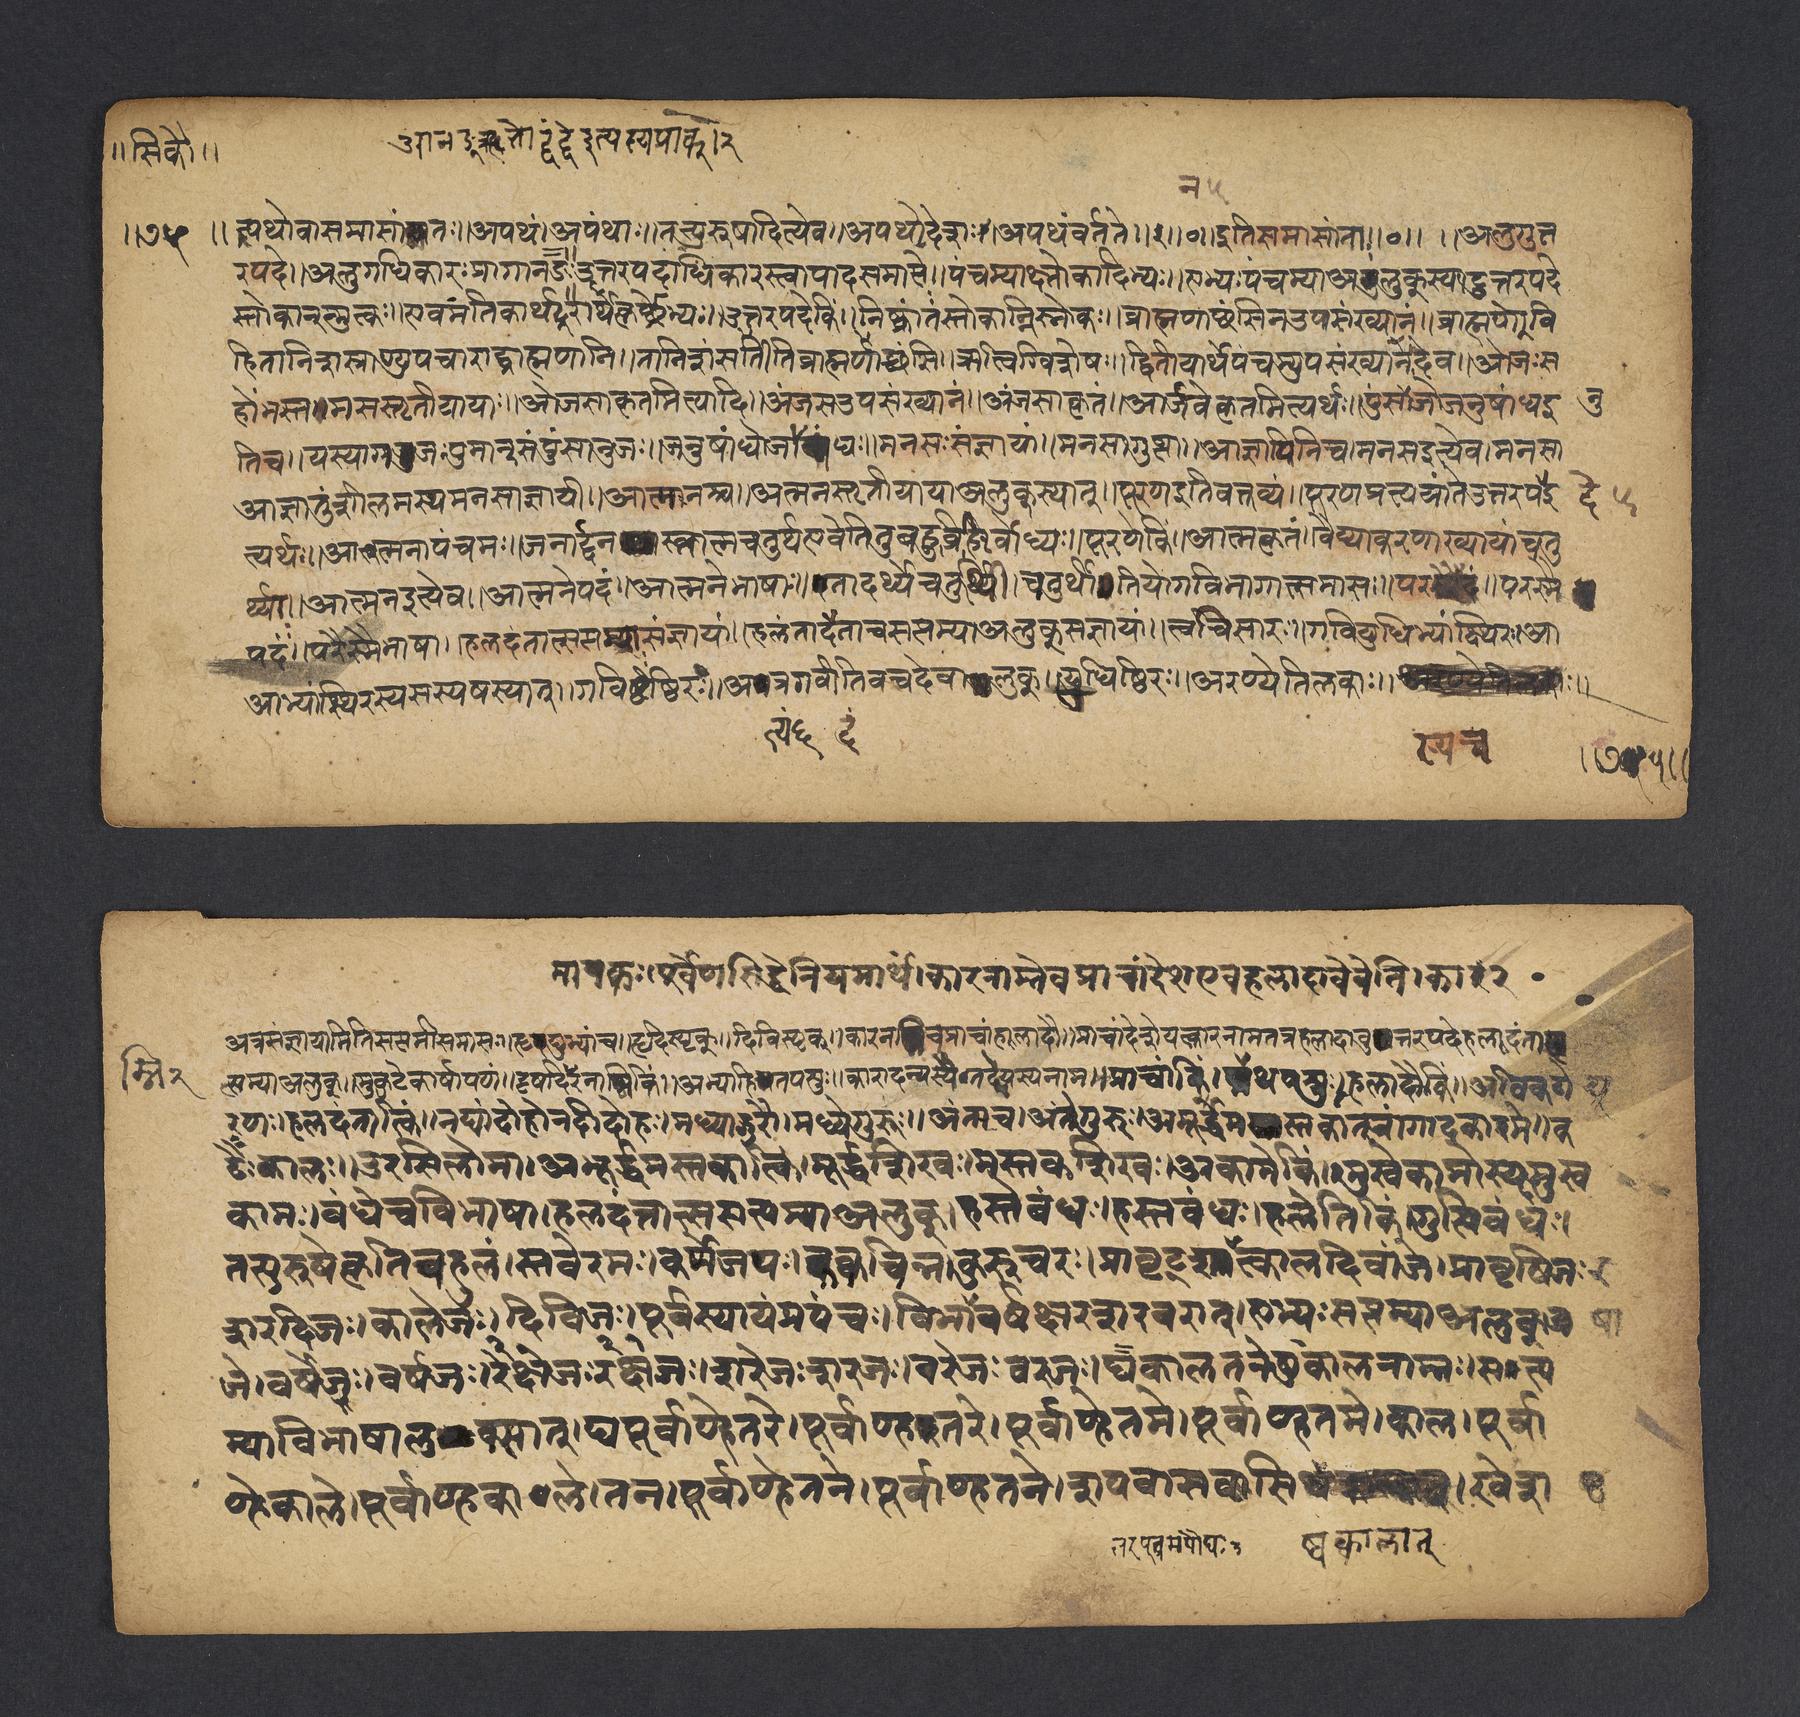 ॥सिकौ॥
आनङृतोद्वंद्वेइत्यस्यप्राक्।२
॥७५॥ त्पथोवासमासांतः॥अपथं।अपंथाः॥तत्पुरुषादित्येव॥अपथोदेशः॥अपथंवर्तते॥॥०॥इतिसमासांता॥०॥ ॥अलुगुत्त
रपदे॥अलुगधिकारःप्रागानङःउत्तरपदाधिकारस्त्वापादसमाप्तेः॥पंचम्याःस्तोकादिभ्यः॥एभ्यःपंचम्याअलुक्स्यादुत्तरपदे
स्तोकान्मुक्तः॥एवमंतिकार्थदूरार्थकृछ्रेभ्यः॥उत्तरपदेकिं॥निष्क्रांतस्तोकान्निस्तोकः॥ब्राह्मणाछंसिनउपसंख्यानं॥ब्राह्मणेवि
हितानिशस्त्राण्युपचाराद्ब्राह्मणानि॥तानिशंसतीतिब्राह्मणाछंसि॥ऋत्विग्विशेषः॥द्वितीयार्थेपंचम्युपसंख्यानादेव॥ओजःस
होंभस्तमसस्तृतीयायाः॥ओजसाकृतमित्यादि॥अंजसउपसंख्यानं॥अंजसाकृतं॥आर्जवेकृतमित्यर्थः॥पुंसांजोजनुषांधइ नु
तिच॥यस्याग्रजःपुमान्संपुंसानुजः॥जनुषांधोजात्यंधः॥मनसःसंज्ञायां॥मनसागुप्ता॥आज्ञायिनिच।मनसइत्येव।मनसा
आज्ञातुंशीलमस्यमनसाज्ञायी॥आत्मानश्च॥आत्मनस्तृतीयायाअलुक्स्यात्॥पूरणइतिवक्तव्यं॥पूरणप्रत्ययांतउत्तरपदेइ दे५
त्यर्थः॥आत्मनापंचमः॥जनार्द्दनस्त्वात्मचतुर्थएवेतितुबहुव्रीहिर्बोध्यः॥पूरणेकिं॥आत्मकृतं॥वैयाकरणाख्यायांचतु
र्थ्याः॥आत्मनइत्येव॥आत्मनेपदं॥आत्मनेभाषाः॥तादर्थ्येचतुर्थी॥चतुर्थीतियोगविभागात्समासः॥परस्यच॥परस्मै
पदं॥परस्मैभाषा॥हलदंतात्सप्तम्याःसंज्ञायां॥हलंताददंताच्चसप्तम्याअलुक्संज्ञायां॥त्वचिसारः॥गवियुधिभ्यांस्थिरः॥आ
आभ्यांस्थिरस्यसस्यषस्यात्॥गविष्ठिरः॥अत्रगवीतिवचनादेवालुक्॥युधिष्ठिरः॥अरण्येतिलकाः॥
॥७५॥
मावकः।पूर्वेणसिद्धेनियमार्थं।कारनाम्नेवप्राचांदेशएवहलादावेवेति।का२
अत्रसंज्ञायामितिसप्तमीसमासः॥हृद्द्युभ्यांच॥हृदिस्पृक्॥दिविस्पृक्॥कारनाम्निचप्राचांहलादौ॥प्राचांदेशेयत्कारनामतत्रहलादावुत्तरपदेहलदंतात्स
प्तम्याअलुक्॥मुकुटेकार्षापणं॥दृषदिमाषकः॥अभ्यर्हितपशुः॥कारादन्यस्यैतद्देयस्यनाम॥प्राचांकिं॥यूथपशुः॥हलादौकिं॥अविकटो
रणः॥हलदंतात्किं॥नद्यांदोहोनदीदोहः॥मध्याद्गुरौ।मध्येगुरुः॥अंताच्च।अंतेगुरुः।अमूर्द्धमस्तकात्स्वांगादकामे॥क
ंठेकालः॥उरसिलोमा।अमूर्द्धमस्तकात्किं।मूर्द्धशिखः।मस्तकशिखः।अकामेकिं।मुखेकामोस्यमुख
कामः।बंधेचविभाषा।हलदंतात्सप्तम्याअलुक्।हस्तेबंधः।हस्तबंधः।हलेतिकिं।गुप्तिबंधः।
तत्पुरुषेकृतिबहुलं।स्तंबेरमः।कर्णेजपः।क्वचिन्न।कुरुचरः।प्रावृट्शरत्कालदिवांजे।प्रावृषिजः
शरदिजः।कालेजः।दिविजः।पूर्वस्यायंप्रपंचः।विभाषावर्षक्षरशरवरात्।एभ्यःसप्तम्याअलुक् षा
जे।वर्षेजः।वर्षजः।क्षरेजःक्षरजः।शरेजःशरजः।वरेजःवरजः।घकालतनेषुकालनाम्नः।सप्त
म्याविभाषालुक्स्यात्।घपूर्वाण्हेतरे।पूर्वाण्हतरे।पूर्वाण्हेतमे।पूर्वाण्हतमे।काल।पूर्वा
ण्हेकाले।पूर्वाण्हकाले।तन।पूर्वाण्हेतने।पूर्वाण्हतने।शयवासवासि।खेश
ष्वकालात्